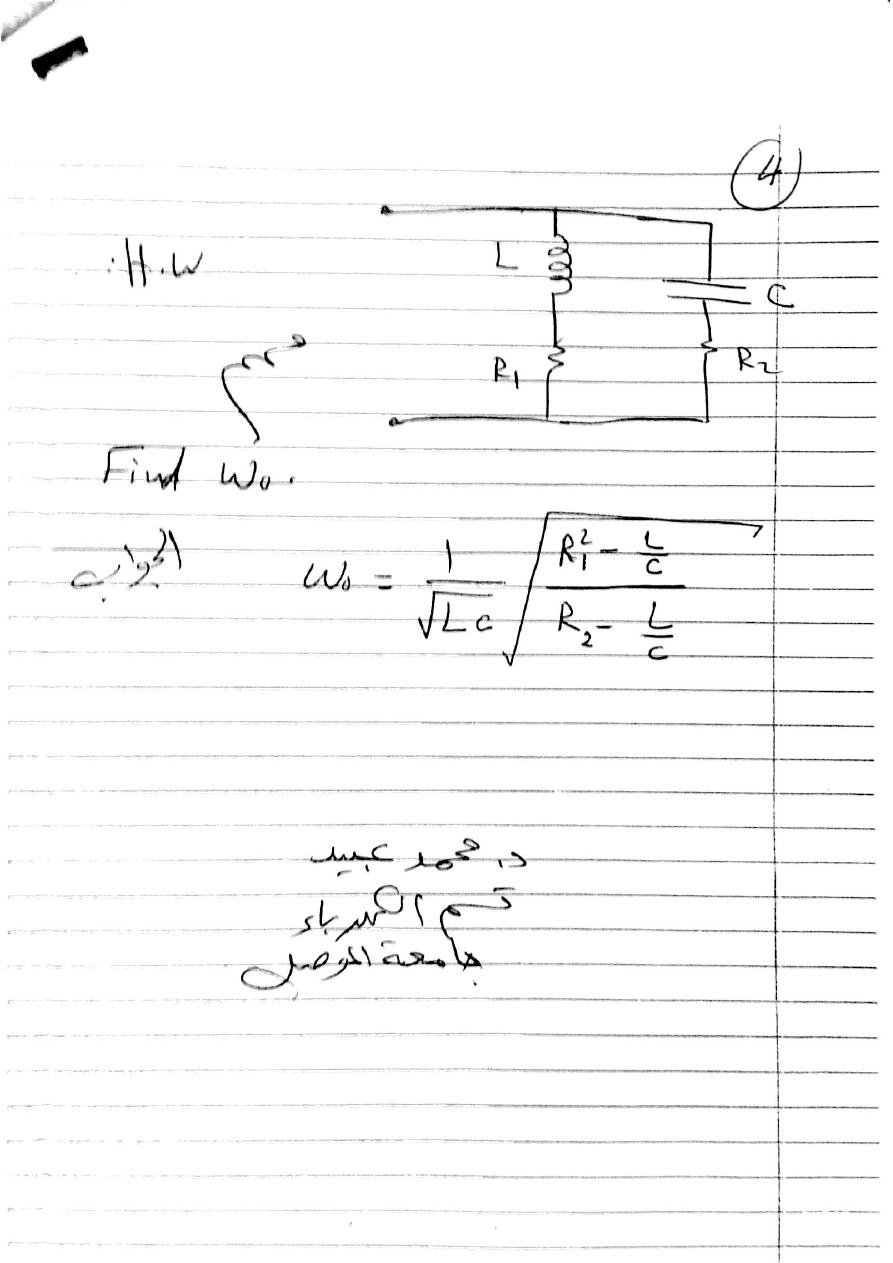 4
H.W:
L
C
R1
R2
Find W₀.
الجواب
W₀ = 1/√LC √((R₁² − L/C)/(R₂ − L/C))
د. محمد عبيد
قسم الكهرباء
جامعة الموصل